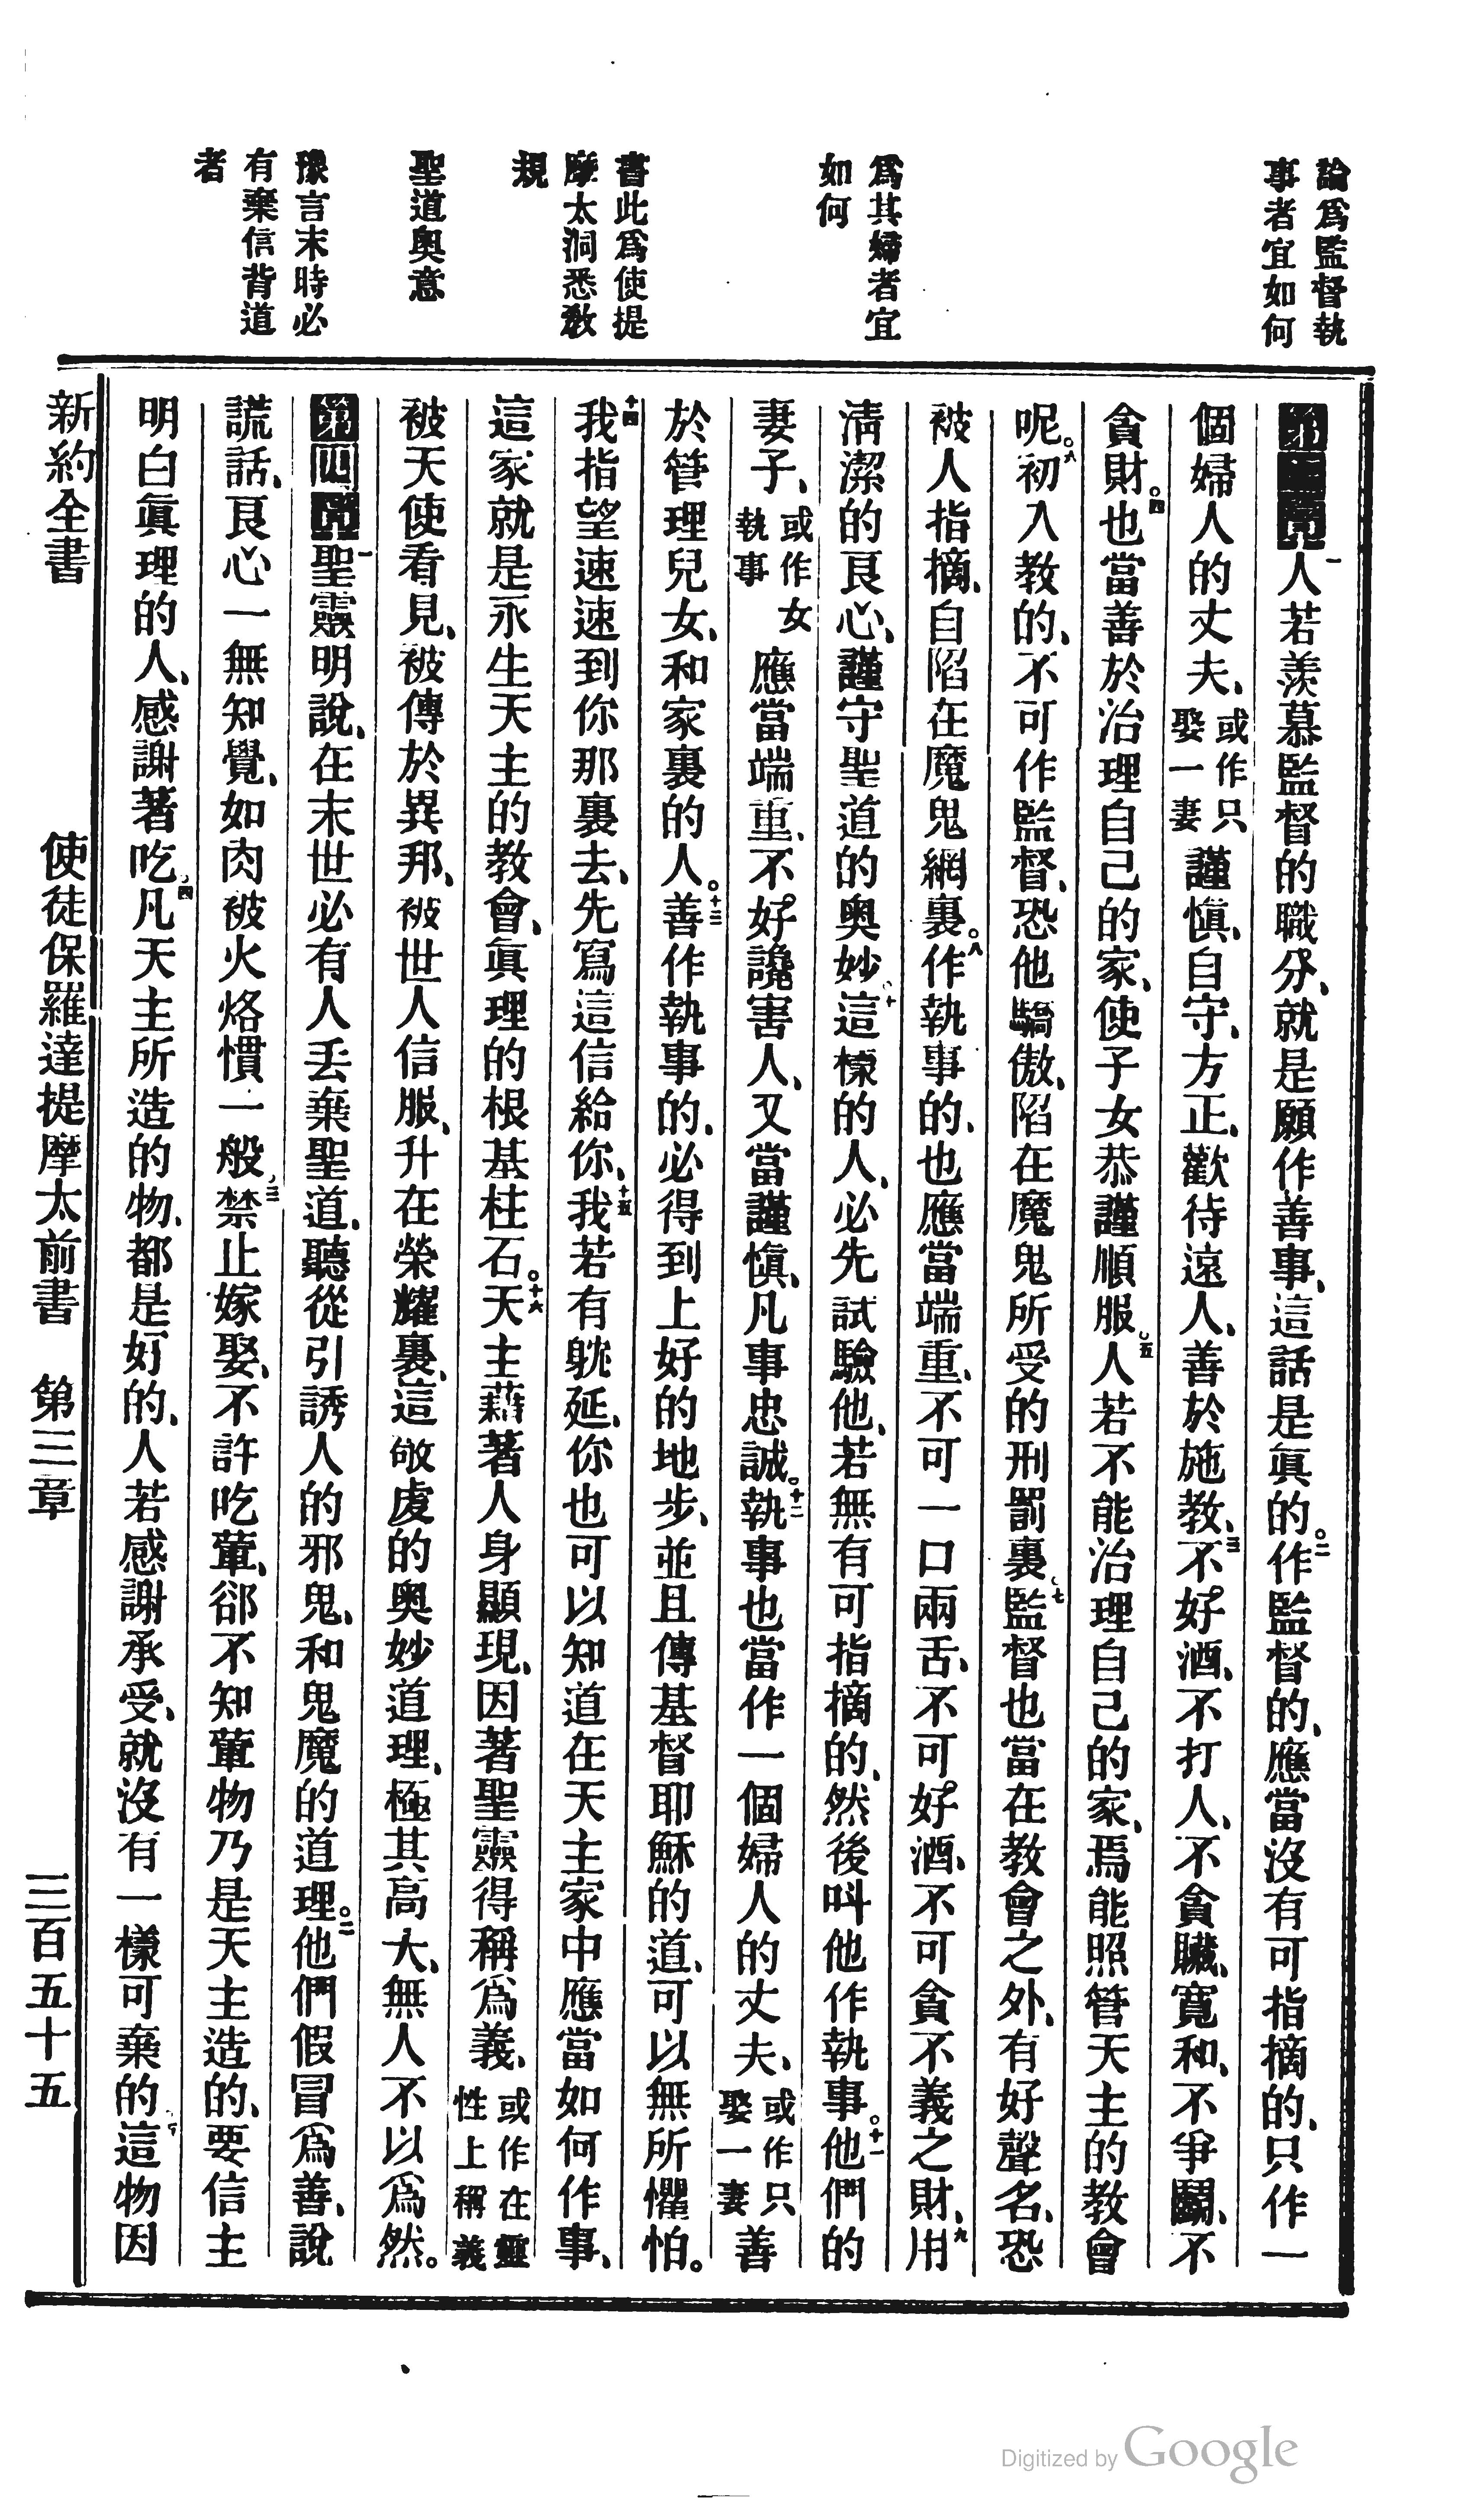 論爲監督執
事者宜如何
爲其婦者宜
如何
書此爲使提
摩太洞悉敎
規
聖道奧意
豫言末時必
有棄信背道
者
第三章一人若羨慕監督的職分、就是願作善事、這話是眞的。二作監督的、應當沒有可指摘的、只作一
個婦人的丈夫、或作只娶一妻謹愼、自守、方正、歡待遠人、善於施教、三不好酒、不打人、不貪贓、寬和、不爭鬭、不
貪財。四也當善於治理自己的家、使子女恭謹順服。五人若不能治理自己的家、焉能照管天主的教會
呢。六初入教的、不可作監督、恐他驕傲、陷在魔鬼所受的刑罰裏。七監督也當在教會之外、有好聲名、恐
被人指摘、自陷在魔鬼網裏。八作執事的、也應當端重、不可一口兩舌、不可好酒、不可貪不義之財、九用
淸潔的良心、謹守聖道的奧妙。十這樣的人、必先試驗他、若無有可指摘的、然後叫他作執事。十一他們的
妻子、或作女執事應當端重、不好讒害人、又當謹愼、凡事忠誠。十二執事也當作一個婦人的丈夫、或作只娶一妻善
於管理兒女、和家裏的人。十三善作執事的、必得到上好的地步、並且傳基督耶穌的道、可以無所懼怕。
十四我指望速速到你那裏去、先寫這信給你、十五我若有躭延、你也可以知道在天主家中應當如何作事、
這家就是永生天主的教會、眞理的根基柱石。十六天主藉著人身顯現、因著聖靈得稱爲義、或作在靈性上稱義
被天使看見、被傳於異邦、被世人信服、升在榮耀裏、這敬虔的奧妙道理、極其高大、無人不以爲然。
第四章一聖靈明說、在末世必有人丢棄聖道、聽從引誘人的邪鬼、和鬼魔的道理。二他們假冒爲善、說
謊話、良心一無知覺、如肉被火烙慣一般、三禁止嫁娶、不許吃葷、卻不知葷物乃是天主造的、要信主
明白眞理的人、感謝著吃、四凡天主所造的物、都是好的、人若感謝承受、就沒有一樣可棄的、五這物因
新約全書　使徒保羅達提摩太前書　第三章　三百五十五
Digitized by Google